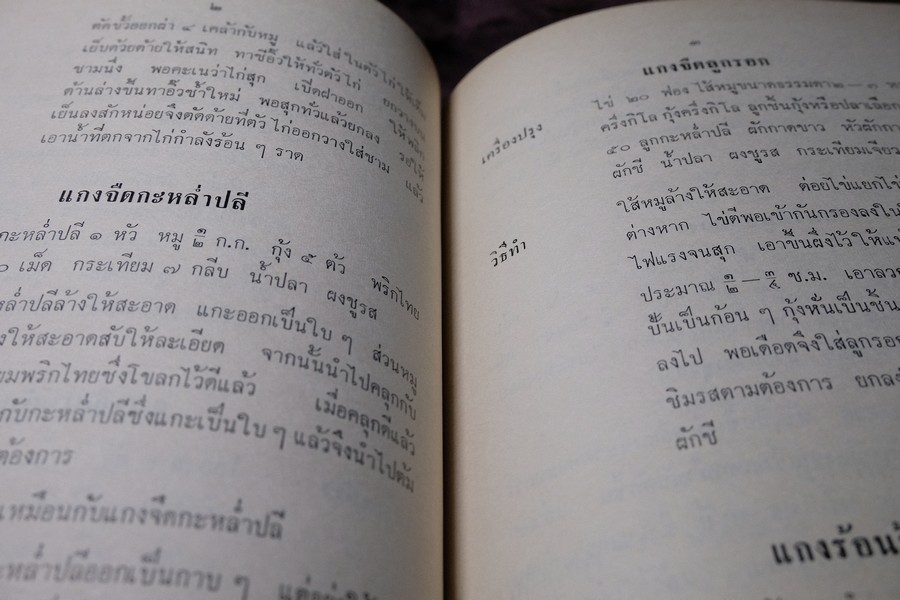 ๒
ตัดขั้วออกผ่า ๔ เคล้ากับหมู แล้วใส่ในตัวไก่
เย็บด้วยด้ายให้สนิท ทาซีอิ๊วให้ทั่วตัวไก่
ชามนึ่ง พอคะเนว่าไก่สุก เปิดฝาออก
ด้านล่างขึ้นทาอิ๊วซ้ำใหม่ พอสุกทั่วแล้วยกลง รอให้
เย็นลงสักหน่อยจึงตัดด้ายที่ตัวไก่ออกวางใส่ชาม แล้ว
เอาน้ำที่ตกจากไก่กำลังร้อน ๆ ราด
แกงจืดกะหล่ำปลี
กะหล่ำปลี ๑ หัว หมู ๑/๒ ก.ก. กุ้ง ๕ ตัว พริกไทย
เม็ด กระเทียม ๗ กลีบ น้ำปลา ผงชูรส
หล่ำปลีล้างให้สะอาด แกะออกเป็นใบ ๆ ส่วนหมู
ให้สะอาดสับให้ละเอียด จากนั้นนำไปคลุกกับ
ยมพริกไทยซึ่งโขลกไว้ดีแล้ว เมื่อคลุกดีแล้ว
กับกะหล่ำปลีซึ่งแกะเป็นใบ ๆ แล้วจึงนำไปต้ม
ต้องการ
เหมือนกับแกงจืดกะหล่ำปลี
ะหล่ำปลีออกเป็นกาบ ๆ
๓
แกงจืดลูกรอก
เครื่องปรุง
ไข่ ๒๐ ฟอง ไส้หมูขนาดธรรมดา ๒—๓
ครึ่งกิโล กุ้งครึ่งกิโล ลูกชิ้นกุ้งหรือปลาเลือก
๕๐ ลูกกะหล่ำปลี ผักกาดขาว หัวผักกา
ผักชี น้ำปลา ผงชูรส กระเทียมเจียว
วิธีทำ
ไส้หมูล้างให้สะอาด ต่อยไข่แยกไข่
ต่างหาก ไข่ตีพอเข้ากันกรองลงใน
ไฟแรงจนสุก เอาขึ้นผึ่งไว้ให้แห้
ประมาณ ๑/๒—๓/๔ ซ.ม. เอาลวก
ปั้นเป็นก้อน ๆ กุ้งหั่นเป็นชิ้น
ลงไป พอเดือดจึงใส่ลูกรอก
ชิมรสตามต้องการ ยกลง
ผักชี
แกงร้อน